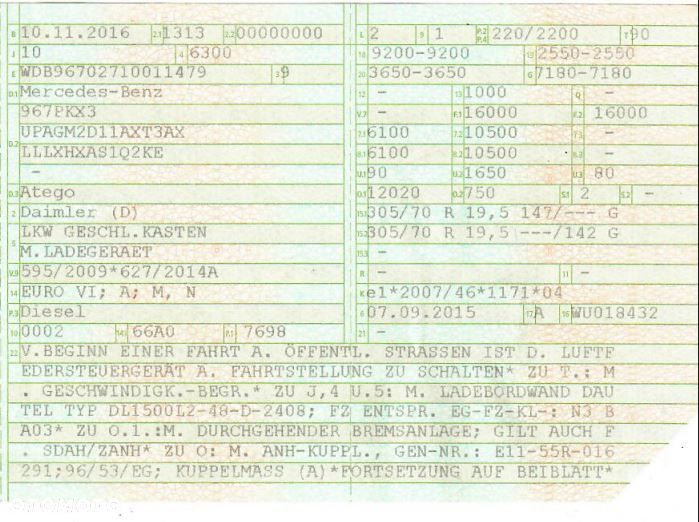 B 10.11.2016 2.1 1313 2.2 00000000 L 2 9 1 P.2 P.4 220/2200 T 90
J 10 4 6300 18 9200-9200 19 2550-2550
E WDB96702710011479 3 9 20 3650-3650 G 7180-7180
D.1 Mercedes-Benz 12 - 13 1000 Q -
967PKX3 V.7 - F.1 16000 F.2 16000
D.2 UPAGM2D11AXT3AX 7.1 6100 7.2 10500 7.3 -
LLLXHXAS1Q2KE 8.1 6100 8.2 10500 8.3 -
- U.1 90 U.2 1650 U.3 80
D.3 Atego O.1 12020 O.2 750 S.1 2 S.2 -
2 Daimler (D) 15.1 305/70 R 19,5 147/--- G
5 LKW GESCHL.KASTEN 15.2 305/70 R 19,5 ---/142 G
M.LADEGERAET 15.3 -
V.9 595/2009*627/2014A R - 11 -
14 EURO VI; A; M, N K e1*2007/46*1171*04
P.3 Diesel 6 07.09.2015 17 A 16 WU018432
10 0002 14.1 66A0 P.1 7698 21 -
22 V.BEGINN EINER FAHRT A. ÖFFENTL. STRASSEN IST D. LUFTF
EDERSTEUERGERÄT A. FAHRTSTELLUNG ZU SCHALTEN* ZU T.: M
. GESCHWINDIGK.-BEGR.* ZU J,4 U.5: M. LADEBORDWAND DAU
TEL TYP DL1500L2-48-D-2408; FZ ENTSPR. EG-FZ-KL-: N3 B
A03* ZU O.1.:M. DURCHGEHENDER BREMSANLAGE; GILT AUCH F
. SDAH/ZANH* ZU O: M. ANH-KUPPL., GEN-NR.: E11-55R-016
291;96/53/EG; KUPPELMASS (A)*FORTSETZUNG AUF BEIBLATT*